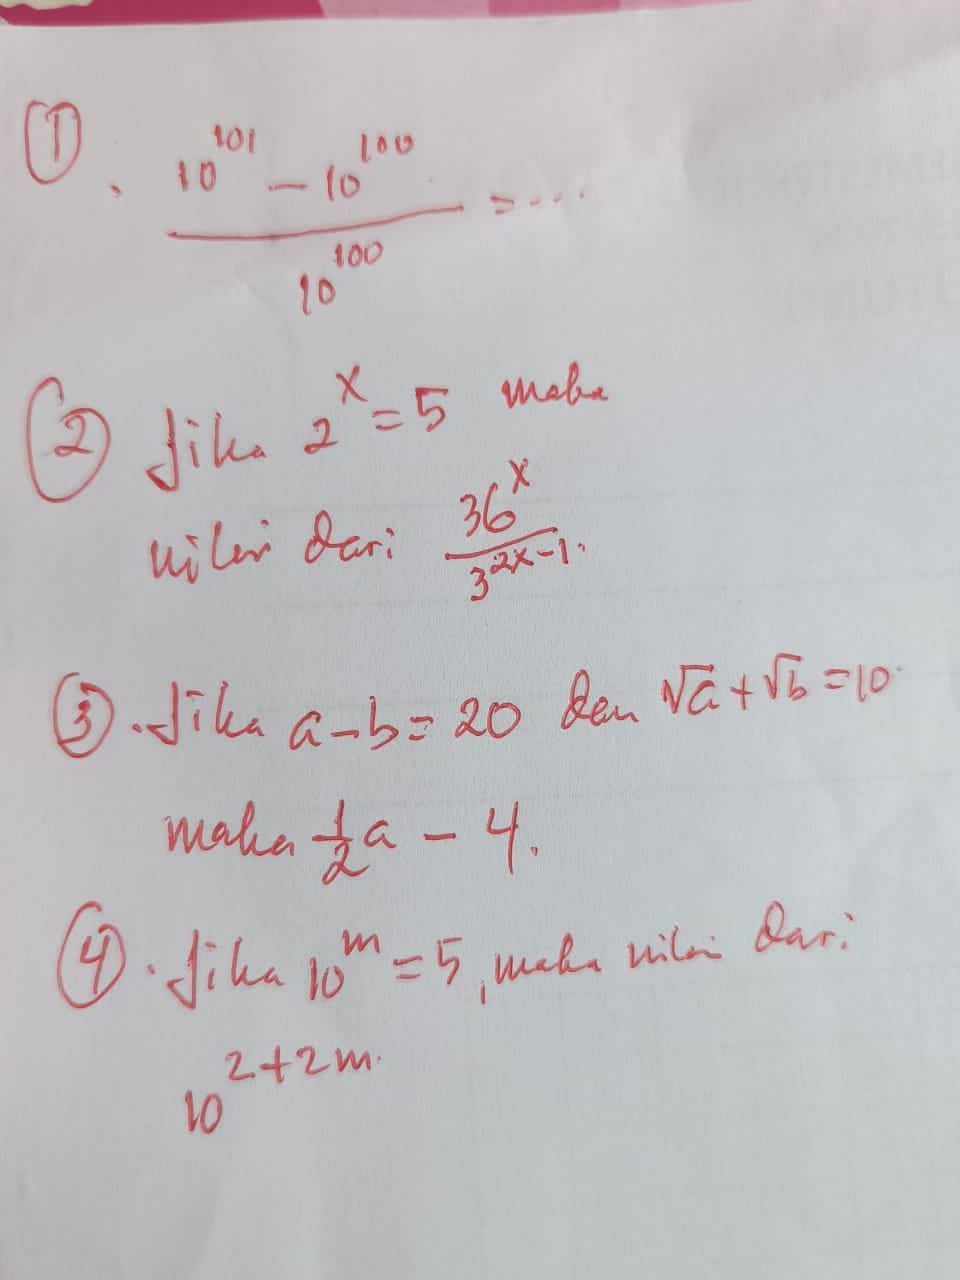 ① . 10^101 - 10^100 / 10^100 = ....
② Jika 2^x = 5 maka
nilai dari 36^x / 3^2x-1.
③ . Jika a-b = 20 dan √a + √b = 10.
maka 1/2 a - 4.
④ . Jika 10^m = 5, maka nilai dari
10^2+2m.